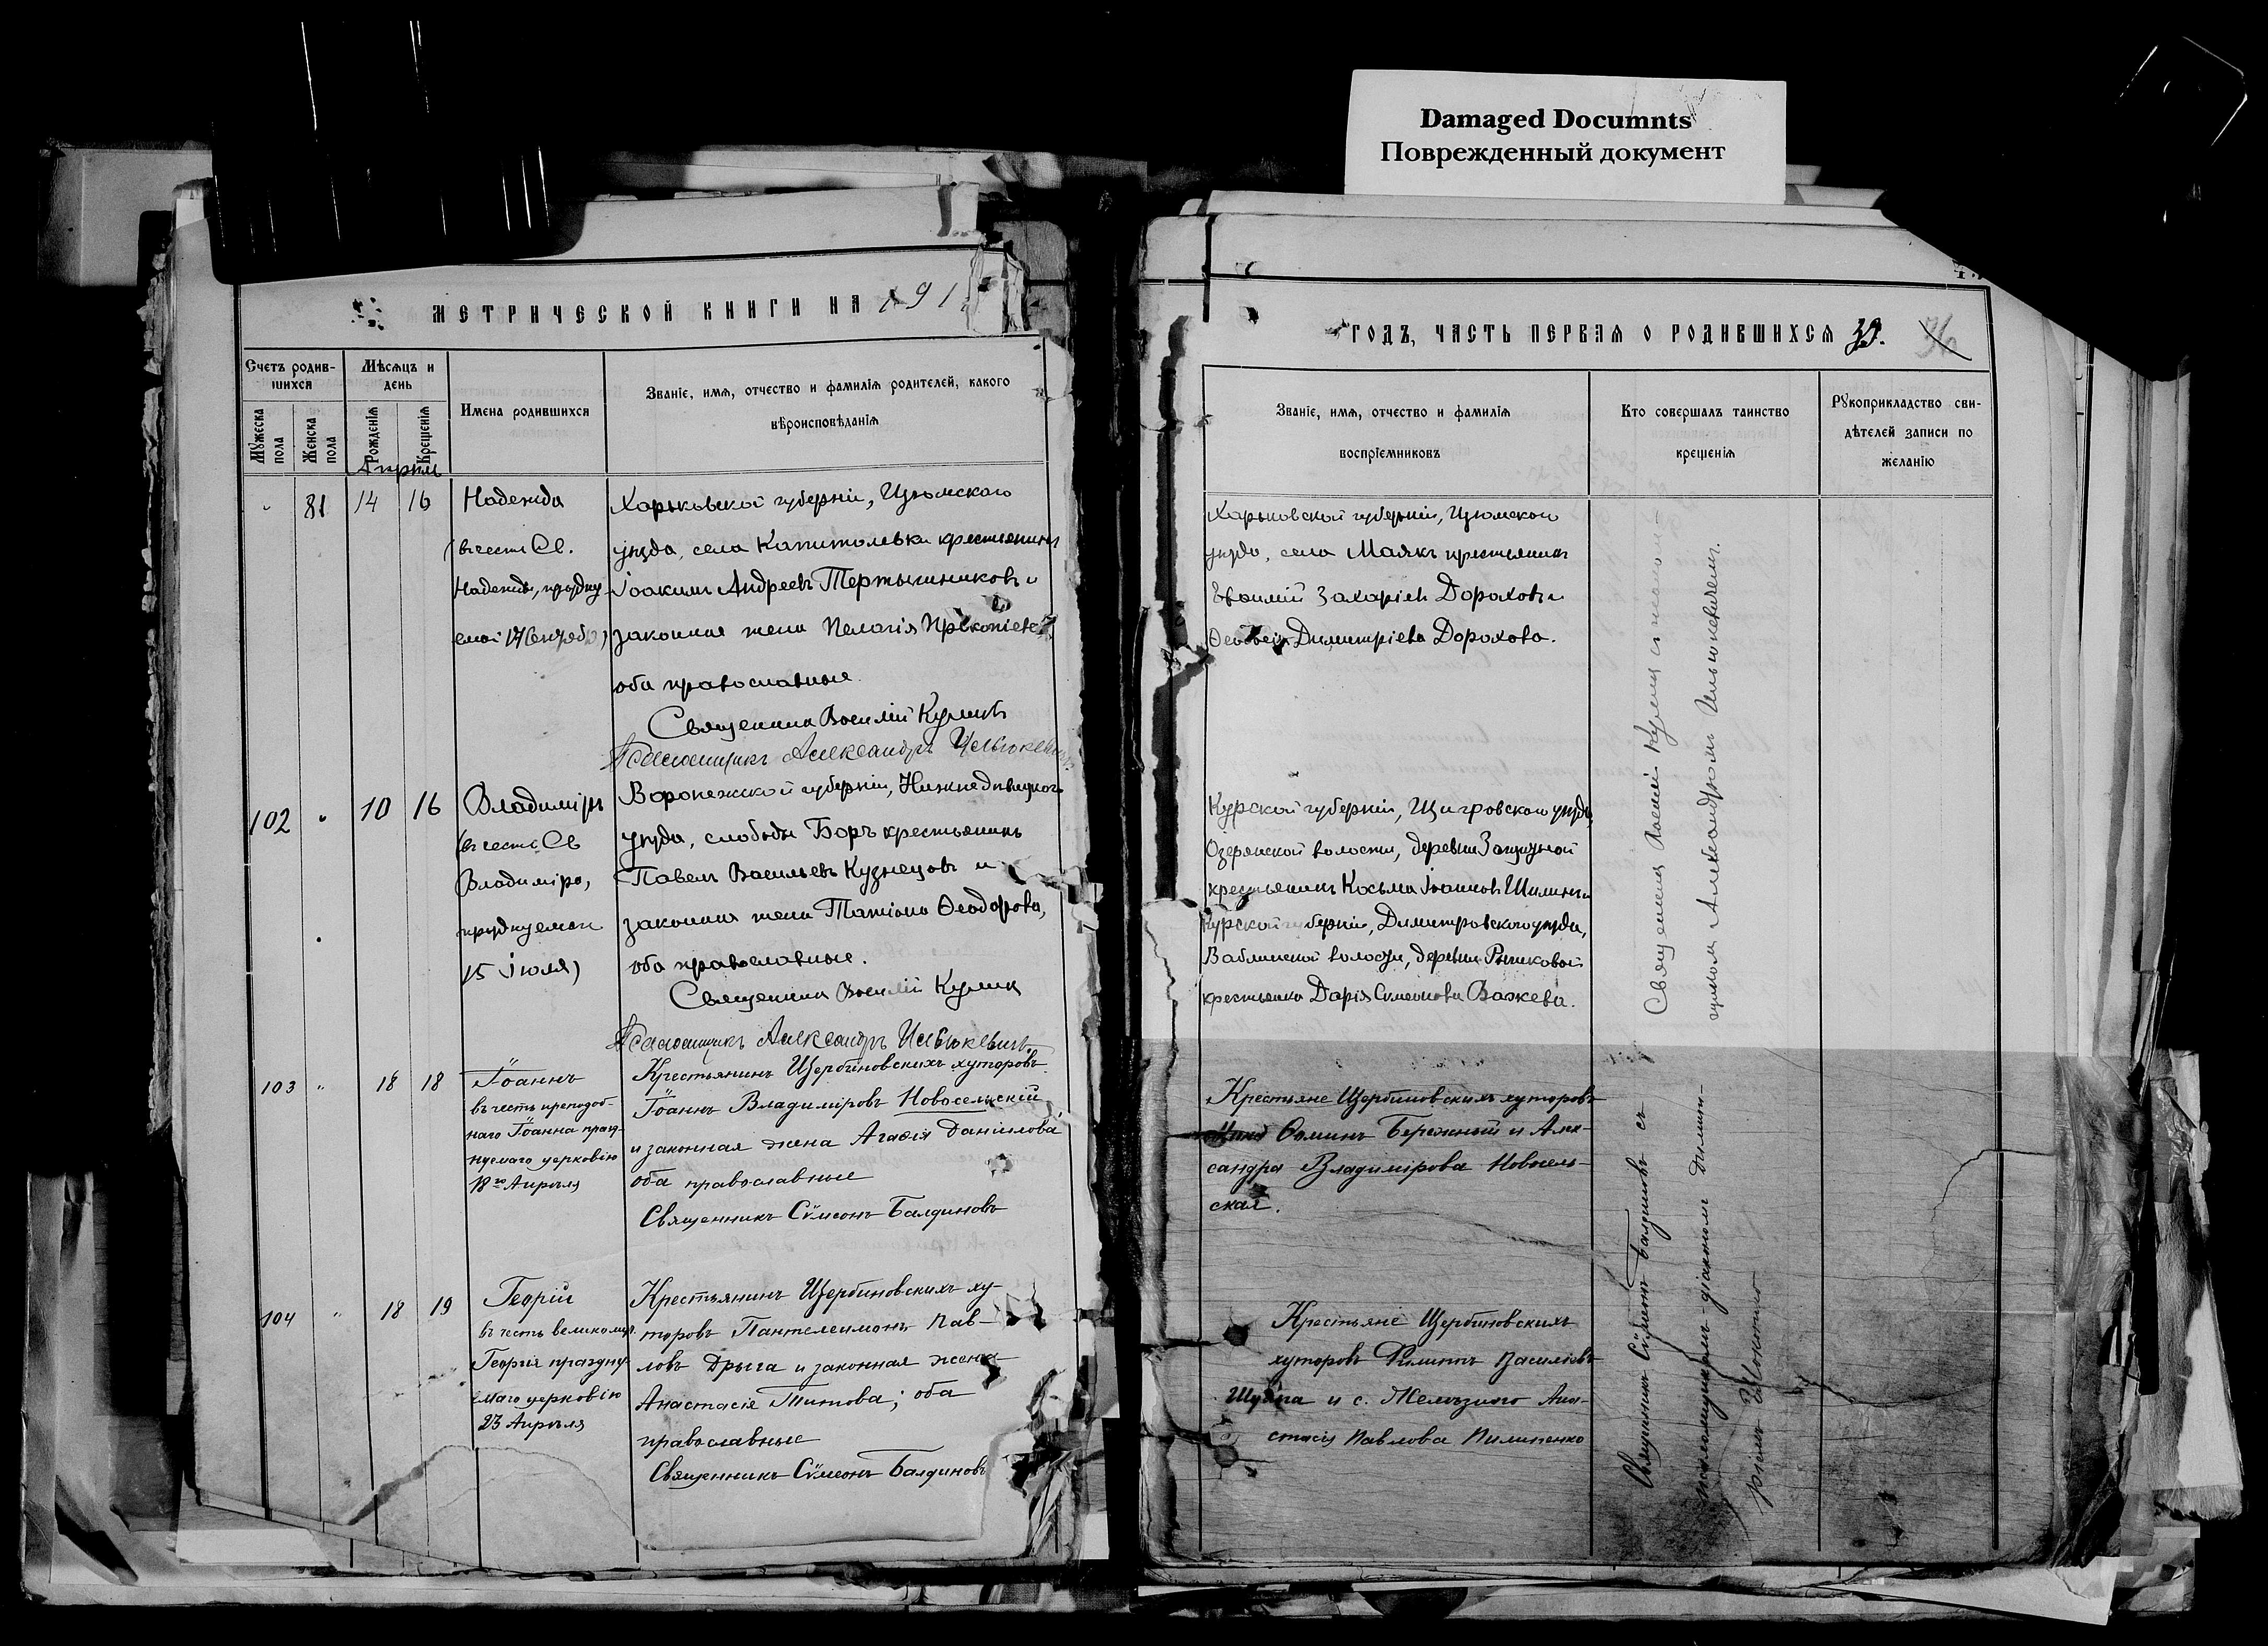 Damaged Documnts
Поврежденный документ
МЕТРИЧЕСКОЙ КНИГИ НА 191
Счетъ родив-
шихся
Мѣсяцъ и
день
Мужеска
пола
Женска
пола
Рожденія
Крещенія
Имена родившихся
Званіе, имя, отчество и фамилія родителей, какого
вѣроисповѣданія
Апрѣль
81 14 16
Надежда
(въ честь Св.
Надежды, праздну-
емой 17 Сентября)
Харьковской губерніи, Изюмскаго
уѣзда, села Капитольвки крестьянинъ
Іоакимъ Андреевъ Тертычниковъ и
законная жена Пелагія Прокопіева,
оба православные.
Священникъ Василій Куликъ
Псаломщикъ Александръ
102 " 10 16
Владиміръ
(въ честь Св
Владиміра,
празднуемаго
15 Іюля)
Воронежской губерніи, Нижнедѣвицкаго
уѣзда, слободы Боръ крестьянинъ
Павелъ Васильевъ Кузнецовъ и
законная жена Татіана Ѳеодорова,
оба православные.
Священникъ Василій Куликъ
Псаломщикъ Александръ
103 " 18 18
Іоаннъ
въ честь преподоб-
наго Іоанна празд-
нуемаго церковію
18го Апрѣля
Крестьянинъ Щербиновскихъ хуторовъ
Іоаннъ Владиміровъ Новосельскій
и законная жена Агаѳія Даніилова
оба православные
Священникъ Сѵмеонъ Балдиновъ
104 " 18 19
Георгій
въ честь великомуч.
Георгія праздну-
емаго церковію
23 Апрѣля
Крестьянинъ Щербиновскихъ ху-
торовъ Пантелеимонъ Пав-
ловъ Дрыга и законная жена
Анастасія Титова; оба
православные
Священникъ Сѵмеонъ Балдиновъ
ГОДЪ, ЧАСТЬ ПЕРВАЯ О РОДИВШИХСЯ 39. 36
Званіе, имя, отчество и фамилія
воспріемниковъ
Кто совершалъ таинство
крещенія
Рукоприкладство сви-
дѣтелей записи по
желанію
Харьковской губерніи, Изюмскаго
уѣзда, села Маякъ крестьянинъ
Евѳимій Захаріевъ Дороховъ и
Димитріева Дорохова.
Курской губерніи, Щигровскаго уѣзда,
Озерянской волости, деревни
крестьянинъ Косьма Іоанновъ Шилинъ и
Курской губерніи, Димитровскаго уѣзда,
волости, деревни Рышковой
крестьянка Дарія Сѵмеонова Важева.
Крестьяне Щербиновскихъ хуторовъ
Ѳоминъ Бережный и Алек-
сандра Владимірова Новосель-
ская.
Крестьяне Щербиновскихъ
хуторовъ Филиппъ Васильевъ
и с. Желѣзного Ана-
стасія Павлова Пилипенко
Священникъ Василій Куликъ съ псалом-
щикомъ Александромъ
Священникъ Сѵмеонъ Балдиновъ съ
псаломщикомъ-діакономъ Димит-
ріемъ